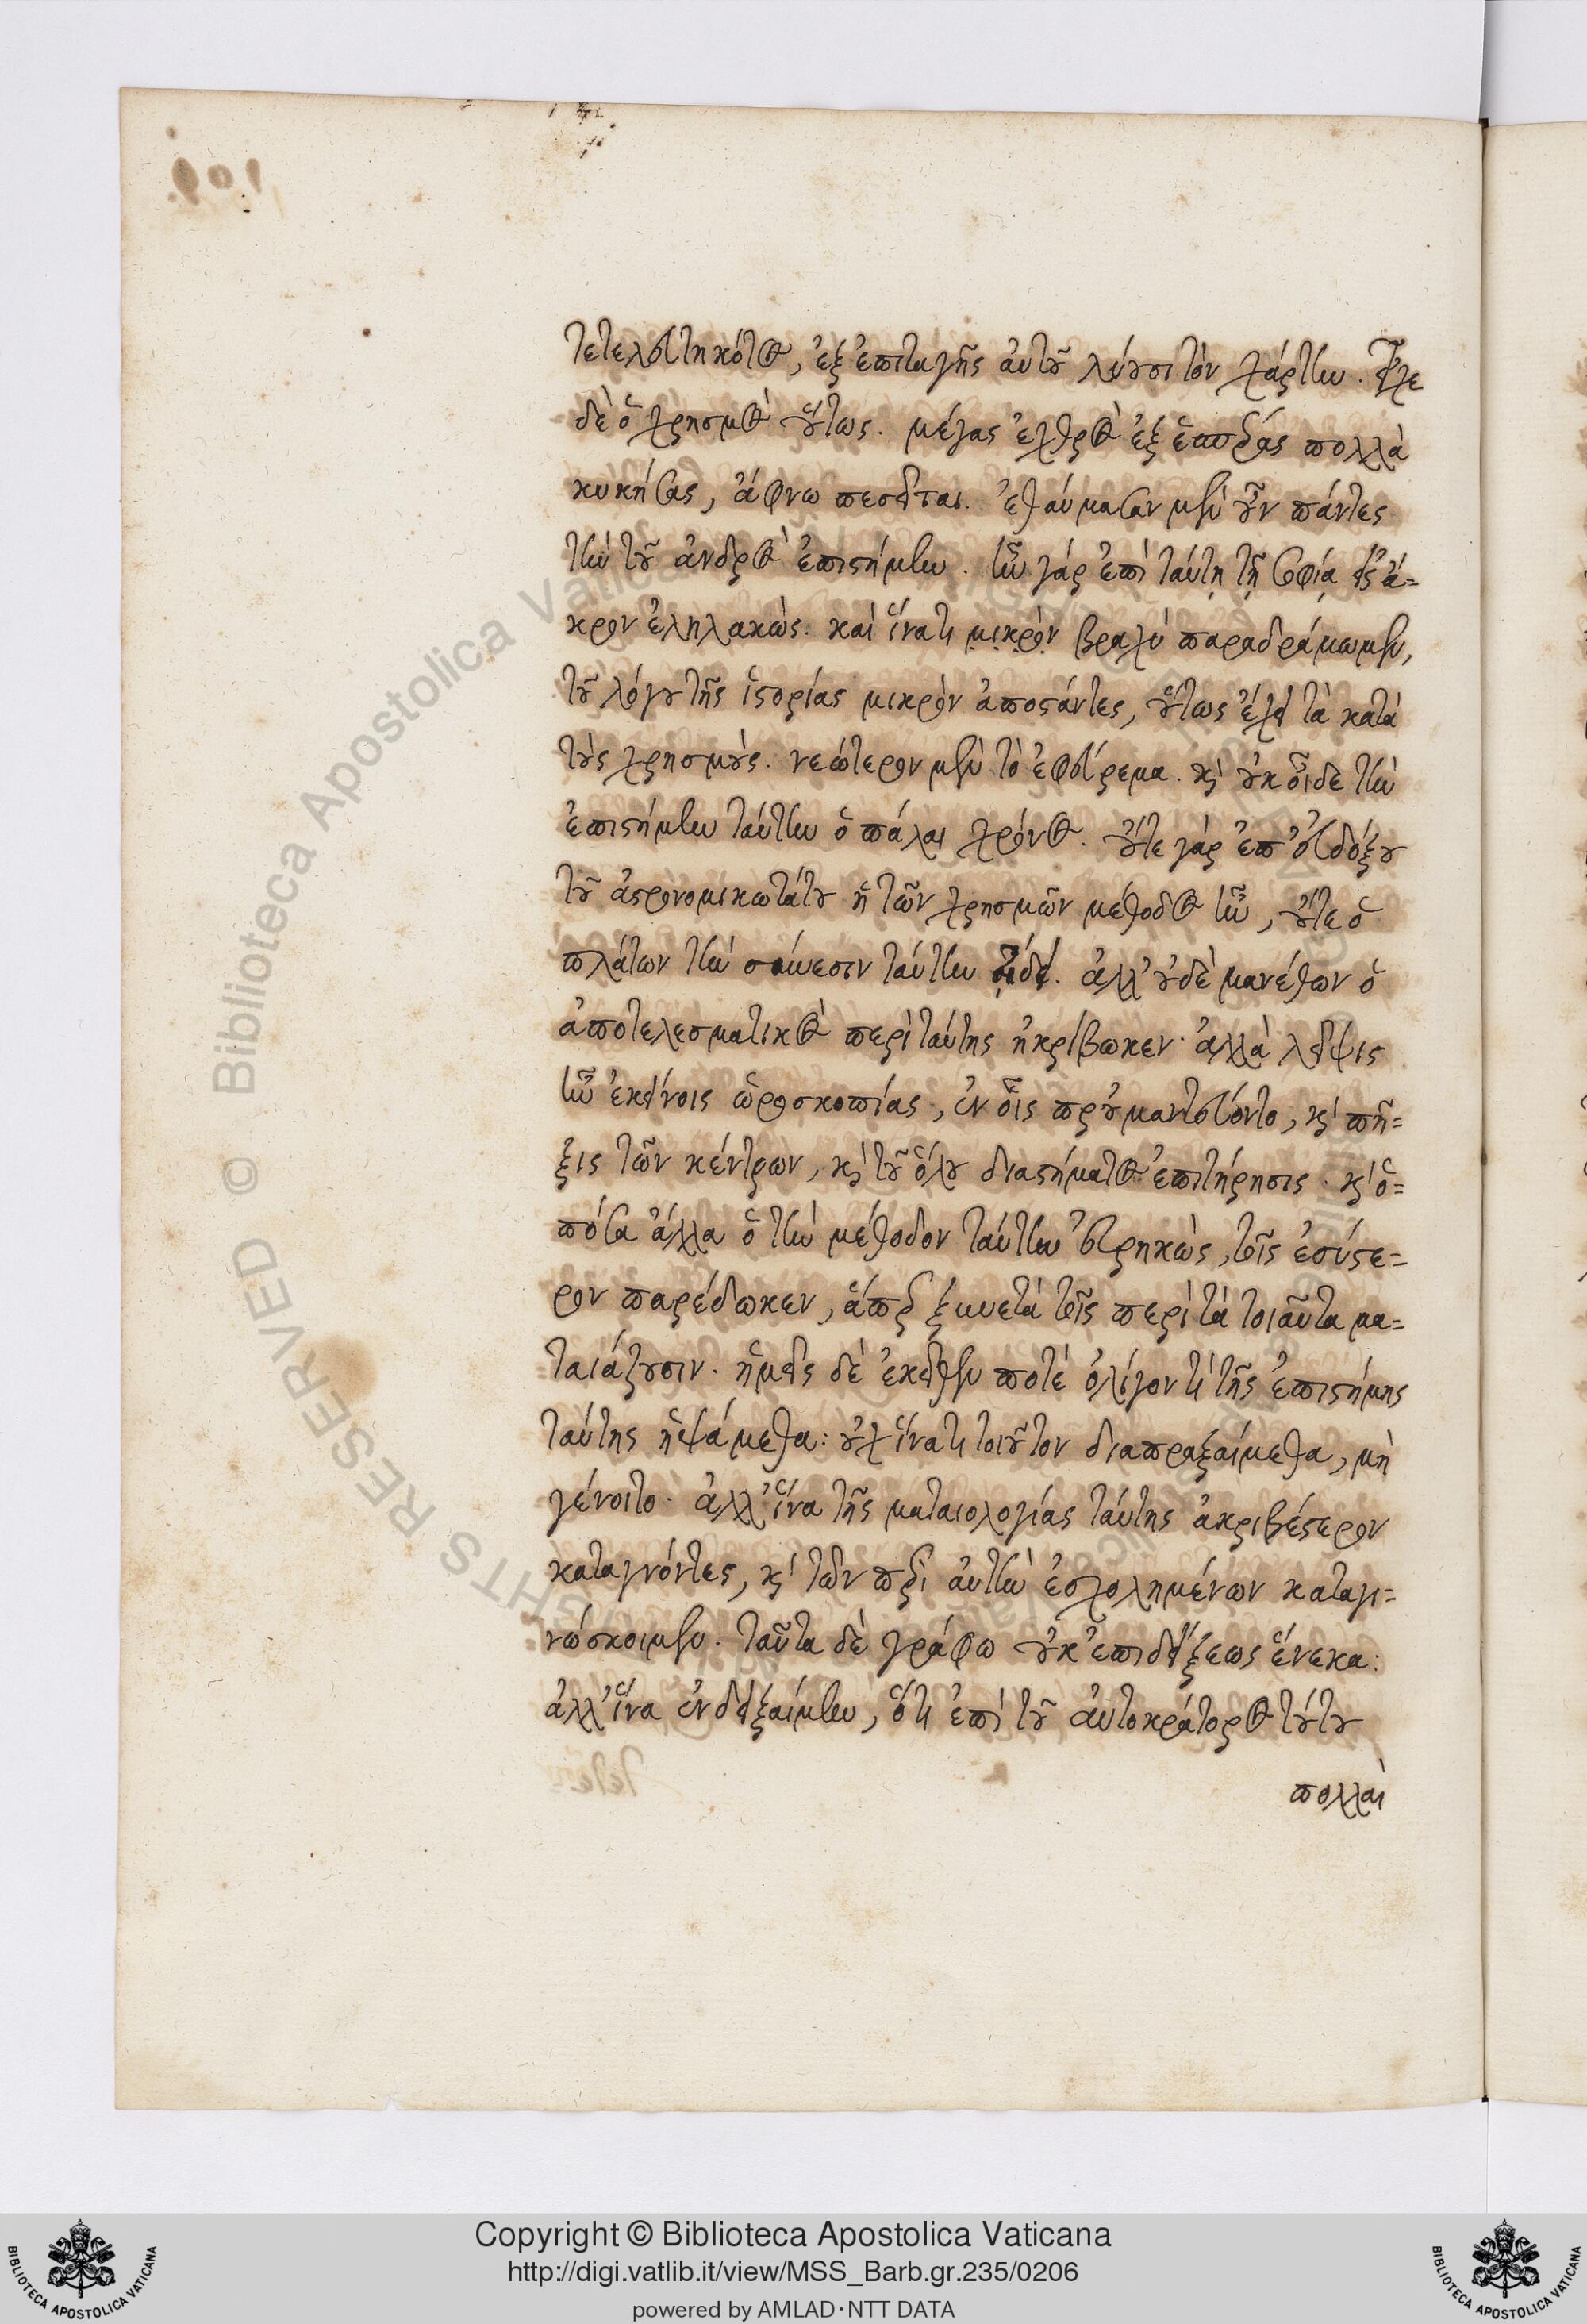 τετελευτηκότος, ἐξ ἐπιταγῆς ἀυτοῦ λύουσι τὸν χάρτην. εἶχε
δὲ ὁ χρησμὸς οὕτως. μέγας ἐχθρὸς ἐξ ἑσπέρας πολλὰ
κυκήσας, ἄφνω πεσεῖται. ἐθαύμασαν μὲν οὖν πάντες
τὴν τοῦ ἀνδρὸς ἐπιστήμην. ἦν γάρ ἐπὶ ταύτῃ τῇ σοφίᾳ εἰς ἄ=
κρον ἐληλακώς. καὶ ἵνά τι μικρὸν βραχὺ παραδράμωμεν,
τοῦ λόγου τῆς ἱστορίας μικρὸν ἀποστάντες, οὕτως ἔχει τὰ κατὰ
τοὺς χρησμούς. νεώτερον μὲν τὸ ἐφεύρεμα. καὶ οὐκ οἶδε τὴν
ἐπιστήμην ταύτην ὁ πάλαι χρόνος. οὔτε γάρ ἐπ' εὐδόξου
τοῦ ἀστρονομικωτάτου ἡ τῶν χρησμῶν μέθοδος ἦν, οὔτε ὁ
πλάτων τὴν σύνεσιν ταύτην ᾔδει. ἀλλ' οὐδὲ μανέθων ὁ
ἀποτελεσματικὸς περὶ ταύτης ἠκρίβωκεν. ἀλλὰ λεῖψις
ἦν ἐκείνοις ὡροσκοπίας, ἐν οἷς προὐμαντεύοντο, καὶ πῆ=
ξις τῶν κέντρων, καὶ τοῦ ὅλου διαστήματος ἐπιτήρησις. καὶ ὁ=
πόσα ἄλλα ὁ τὴν μέθοδον ταύτην εὑρηκὼς, τοῖς ἐσύστε=
ρον παρέδωκεν, ἅπερ ξυνετὰ τοῖς περὶ τὰ τοιαῦτα μα=
ταιάζουσιν. ἡμεῖς δὲ ἐκεῖθεν ποτὲ ὀλίγον τί τῆς ἐπιστήμης
ταύτης ἡψάμεθα: οὐχ ἵνά τι τοιοῦτον διαπραξαίμεθα, μὴ
γένοιτο. ἀλλ' ἵνα τῆς ματαιολογίας ταύτης ἀκριβέστερον
καταγνόντες, καὶ τῶν περὶ ἀυτὴν ἐσχολημένων καταγι=
νώσκοιμεν. ταῦτα δὲ γράφω οὐκ ἐπιδείξεως ἕνεκα:
ἀλλ' ἵνα ἐνδειξαίμην, ὅτι ἐπὶ τοῦ ἀυτοκράτορος τούτου
πολλαὶ
Copyright © Biblioteca Apostolica Vaticana
http://digi.vatlib.it/view/MSS_Barb.gr.235/0206
powered by AMLAD·NTT DATA